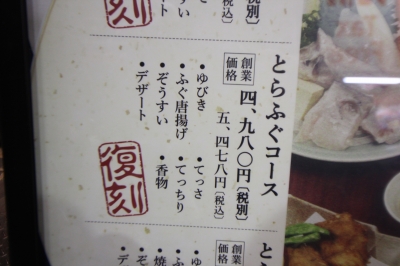 とらふぐコース
創業
価格
四、九八〇円〔税別〕
五、四七八円〔税込〕
•ゆびき
•てっさ
•ふぐ唐揚げ
•てっちり
•ぞうすい
•香物
•デザート
復刻
税別〕
〔税込〕
復刻
創業
価格